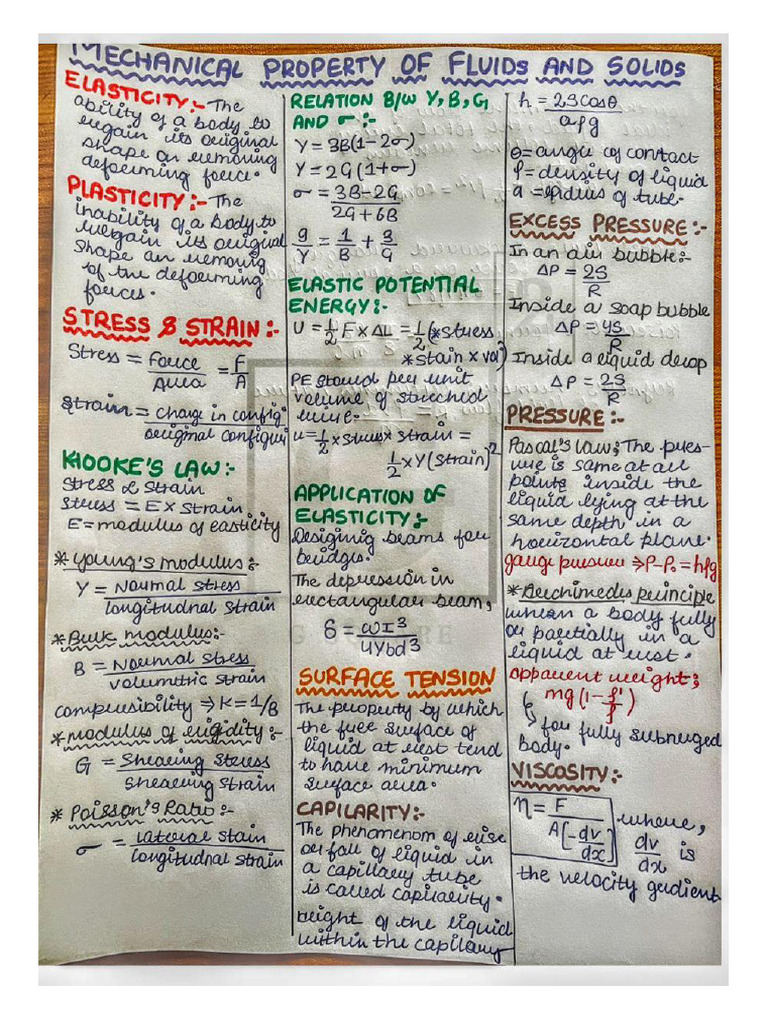 MECHANICAL PROPERTY OF FLUIDS AND SOLIDS
ELASTICITY:- The
ability of a body to
regain its original
shape on removing
deforming force.
PLASTICITY:- The
inability of a body to
regain its original
shape on removing
of the deforming
forces.
STRESS & STRAIN:-
Stress = Force/Area = F/A
Strain = change in config/original configu
HOOKE'S LAW:-
Stress α Strain
stress = E × strain
E = modulus of easticity
* Young's modulus:-
Y = Normal stress/longitudnal strain
* Bulk modulus:-
B = Normal stress/volumtric strain
compressibility ⇒ K = 1/B
* modulus of rigidity:-
G = Shearing stress/Shearing strain
* Poisson's Ratio:-
σ = lateral stain/longitudnal strain
RELATION B/W Y, B, G
AND σ:-
Y = 3B(1-2σ)
Y = 2G(1+σ)
σ = 3B-2G/2G+6B
9/Y = 1/B + 3/G
ELASTIC POTENTIAL
ENERGY:-
U = 1/2 F × ΔL = 1/2 (*stress
* stain × vol)
PE stored per unit
volume of streched
wire.
u = 1/2 × stress × strain =
1/2 × Y (strain)²
APPLICATION OF
ELASTICITY:-
Desiginig beams for
bridges.
The depression in
rectangular beam,
δ = ωI³/4Ybd³
SURFACE TENSION
The property by which
the free surface of
liquid at rest tend
to have minimum
surface area.
CAPILARITY:-
The phenomenom of rise
or fall of liquid in
a capillary tube
is called capilarity.
height of the liquid
within the capillary
h = 2Scosθ/aρg
θ = angle of contact
ρ = density of liquid
a = radius of tube.
EXCESS PRESSURE:-
In an air bubble:-
ΔP = 2S/R
Inside a soap bubble
ΔP = 4S/R
Inside a liquid drop
ΔP = 2S/R
PRESSURE:-
Pascal's Law; The pres-
ure is same at all
points inside the
liquid lying at the
same depth in a
horizontal plane.
gauge pressure ⇒ P-P₀ = hρg
* Archimedes principle
when a body fully
or partially in a
liquid at rest.
apparent weight;
mg(1-ρ'/ρ)
for fully submerged
body.
VISCOSITY:-
η = F/A[-dv/dx] where,
dv/dx is
the velocity gradient